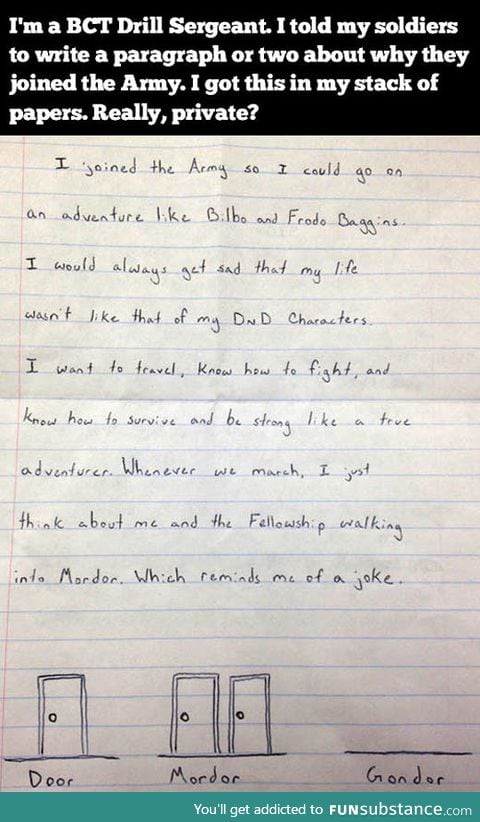 I'm a BCT Drill Sergeant. I told my soldiers
to write a paragraph or two about why they
joined the Army. I got this in my stack of
papers. Really, private?
I joined the Army so I could go on
an adventure like Bilbo and Frodo Baggins.
I would always get sad that my life
wasn't like that of my DND Characters.
I want to travel, know how to fight, and
know how to survive and be strong like a true
adventurer. Whenever we march, I just
think about me and the Fellowship walking
into Mordor. Which reminds me of a joke.
Door Mordor Gondor
You'll get addicted to FUNsubstance.com